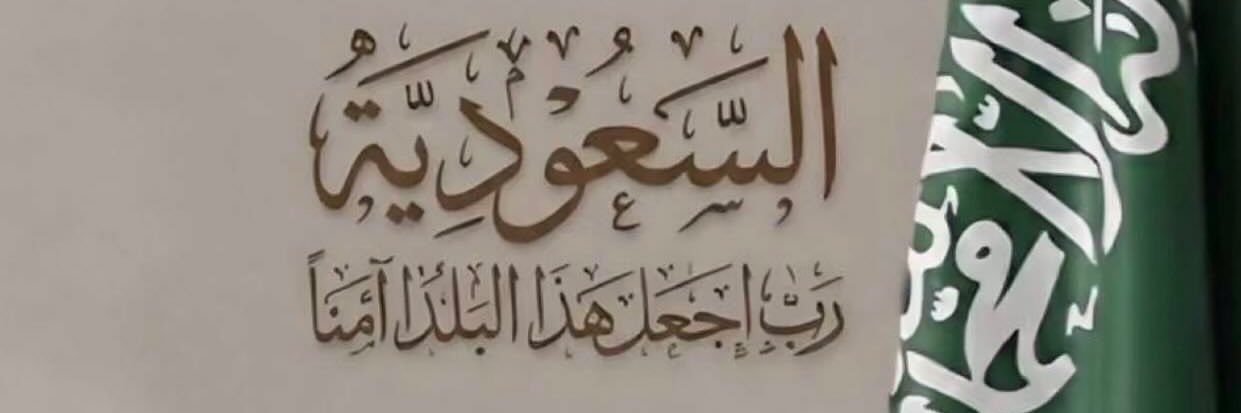 السَّعُودِيَّةُ
رَبِّ اِجَعَل هَذَا البَلَدَا آمَنَاً